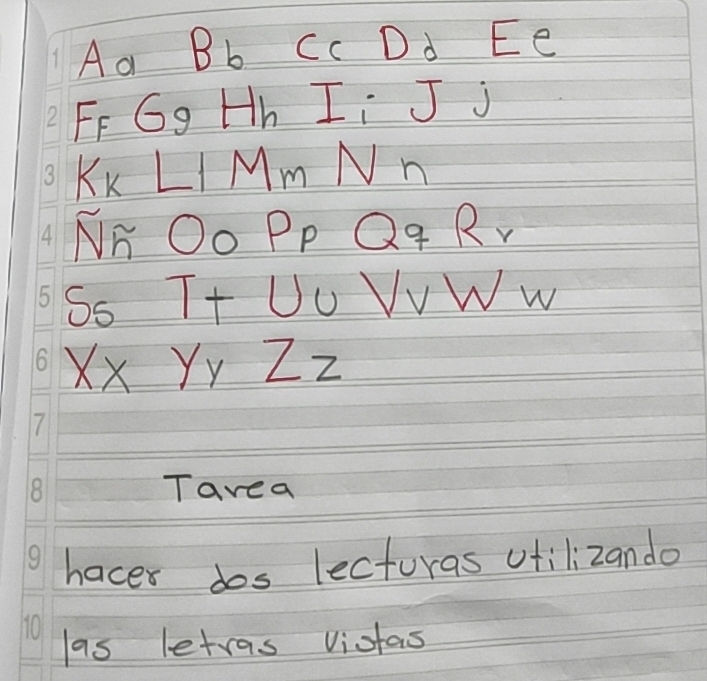 1 Aa Bb Cc Dd Ee
2 FF Gg Hh Ii Jj
3 Kk Ll Mm Nn
4 Ññ Oo Pp Qq Rr
5 Ss Tt Uu Vv Ww
6 Xx Yy Zz
7
8 Tarea
9 hacer dos lecturas utilizando
10 las letras vistas